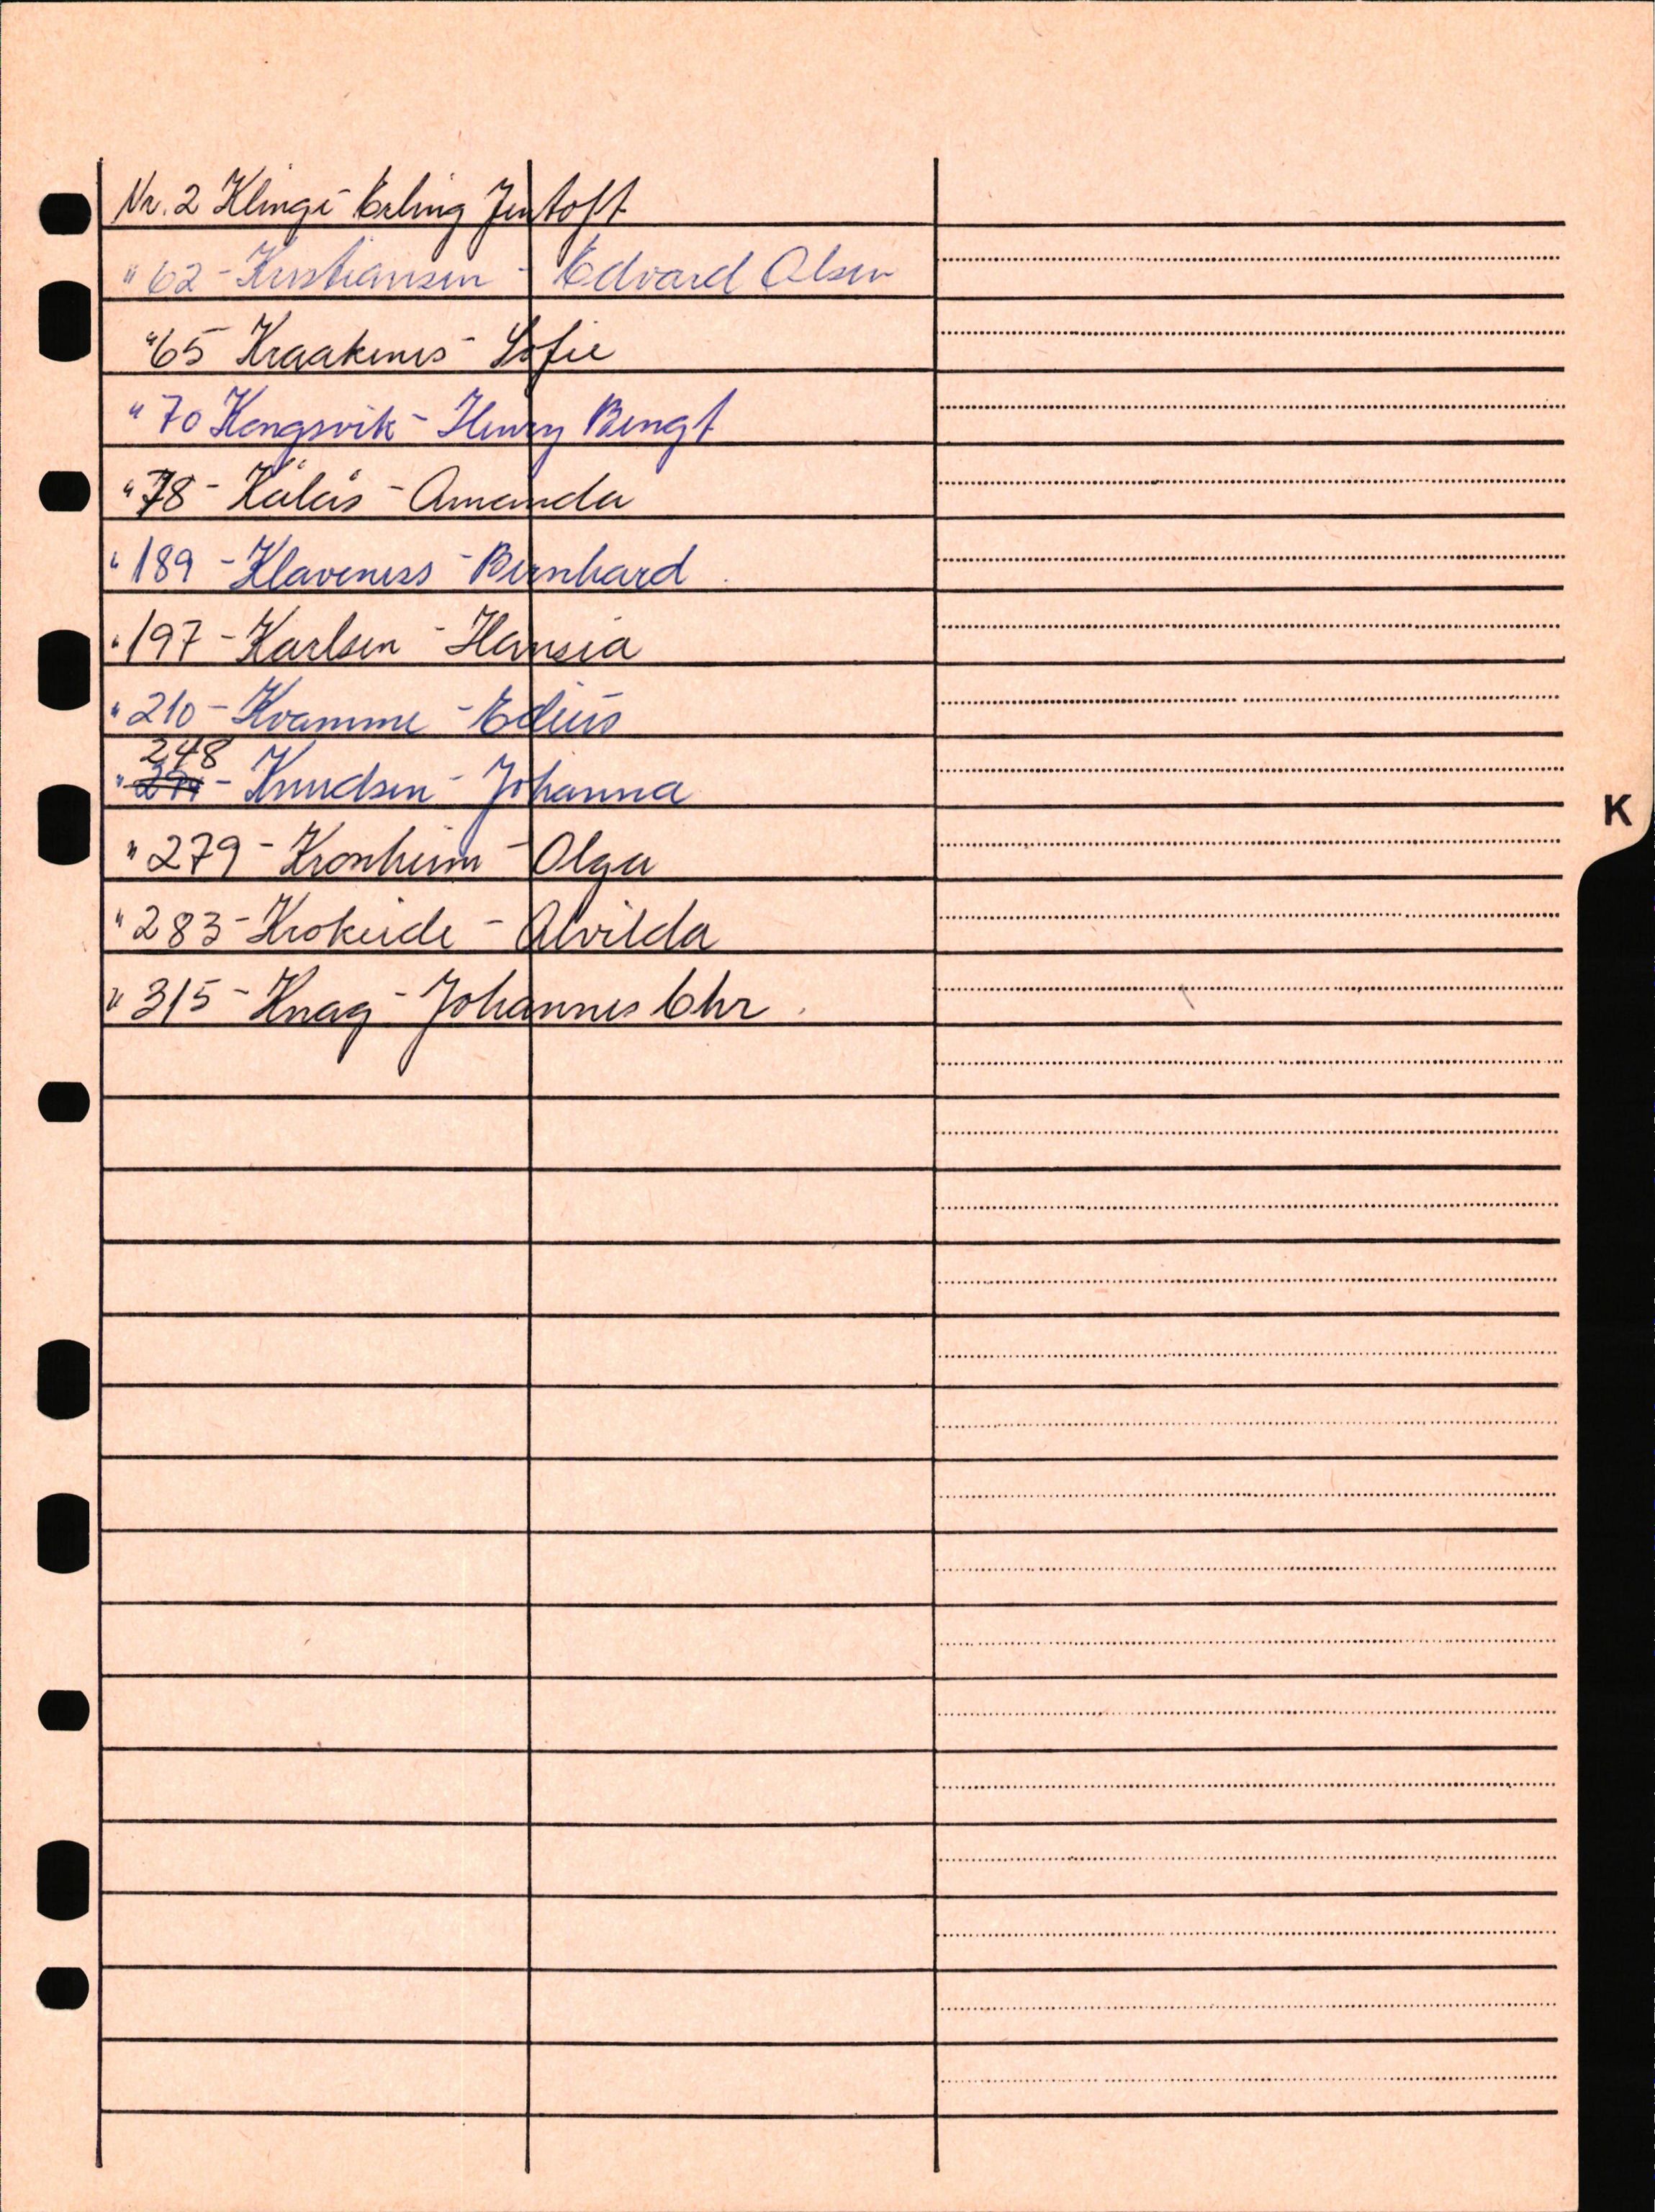 Nr. 2 Klinge - Erling Jentoft
" 62 - Kristiansen - Edvard Olsen
" 65 Kraakenes - Sofie
" 70 Kongsvik - Henry Bengt
" 78 - Kålås - Amanda
" 189 - Klaveness - Bernhard.
" 197 - Karlsen - Hansia
" 210 - Kvamme - Edius
248
" - Knudsen - Johanna
" 279 - Kronheim - Olga
" 283 - Krokeide - Alvilda
" 315 - Knag - Johannes Chr.
K